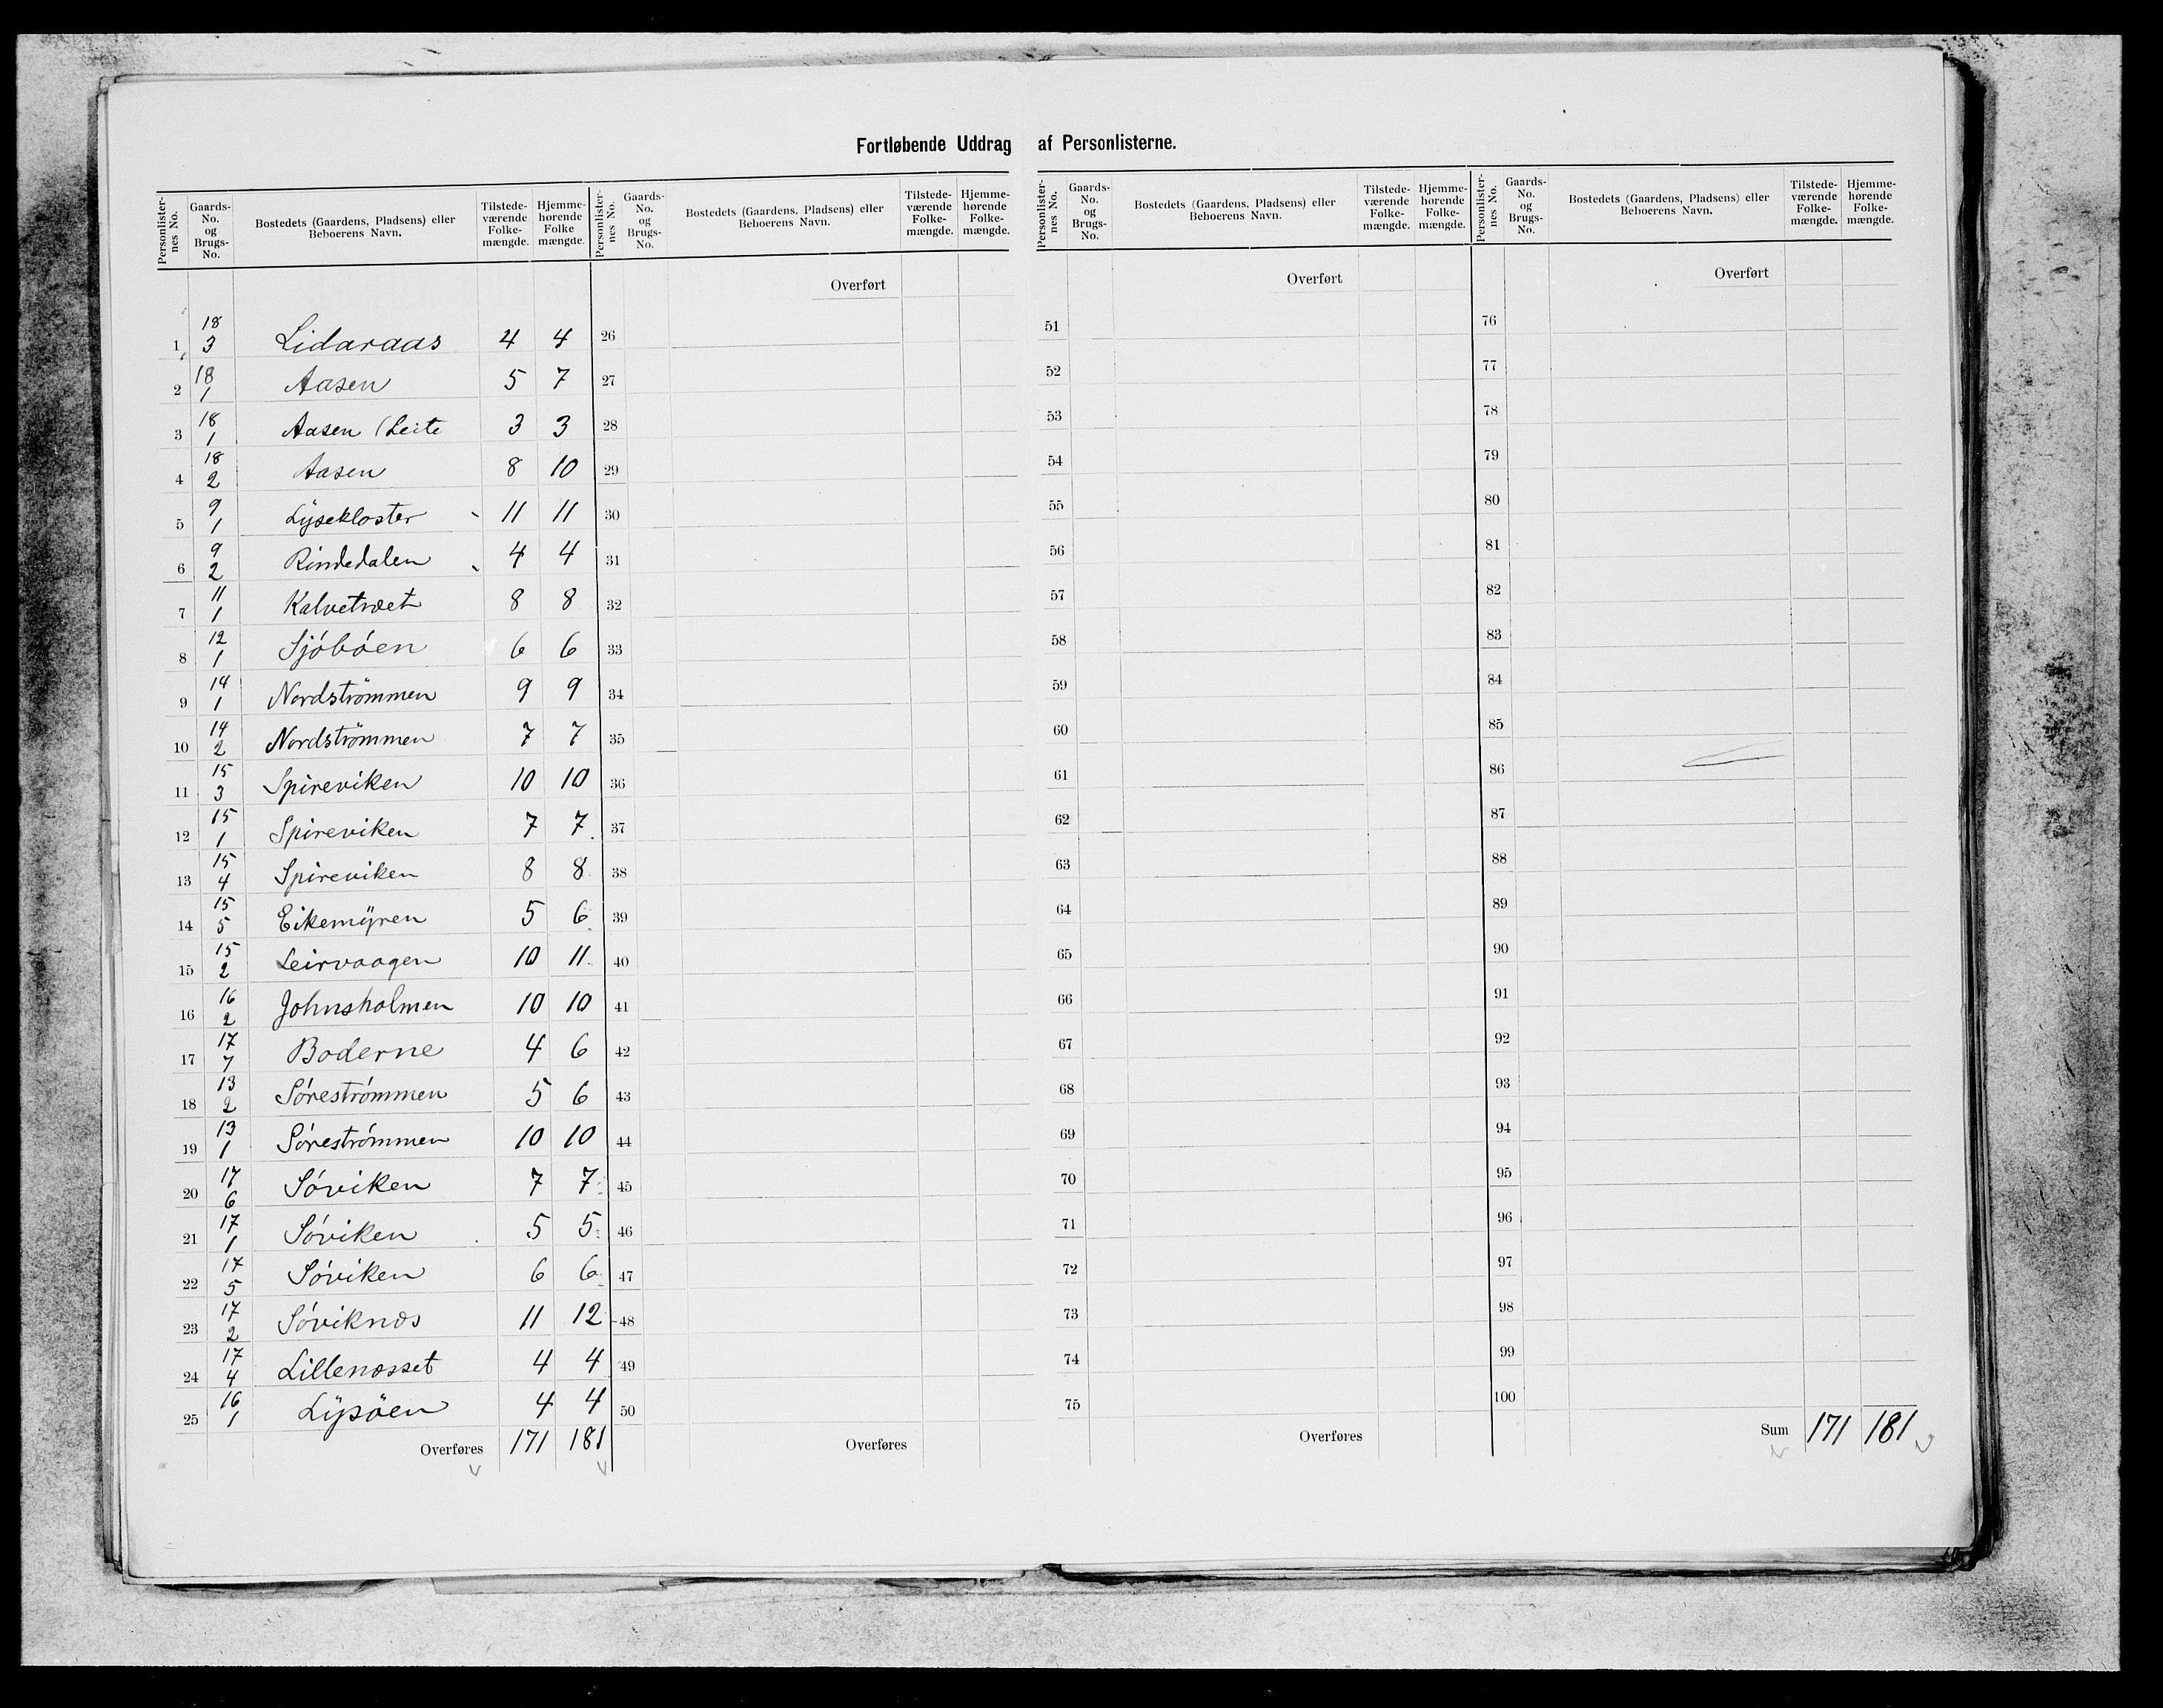 Fortløbende Uddrag af Personlisterne.
Personlister-nes No. | Gaards-No. og Brugs-No. | Bostedets (Gaardens, Pladsens) eller Beboerens Navn. | Tilstede-værende Folke-mængde. | Hjemme-hørende Folke mængde. | Personlister-nes No. | Gaards-No. og Brugs-No. | Bostedets (Gaardens, Pladsens) eller Beboerens Navn. | Tilstede-værende Folke-mængde. | Hjemme-hørende Folke-mængde. | Personlister-nes No. | Gaards-No. og Brugs-No. | Bostedets (Gaardens, Pladsens) eller Beboerens Navn. | Tilstede-værende Folke-mængde. | Hjemme-hørende Folke-mængde. | Personlister-nes No. | Gaards-No. og Brugs-No. | Bostedets (Gaardens, Pladsens) eller Beboerens Navn. | Tilstede-værende Folke-mængde. | Hjemme-hørende Folke-mængde.
Overført Overført Overført
1 18/3 Lidaraas 4 4 26 51 76
2 18/1 Aasen 5 7 27 52 77
3 18/1 Aasen (Leite 3 3 28 53 78
4 18/2 Aasen 8 10 29 54 79
5 9/1 Lysekloster 11 11 30 55 80
6 9/2 Rindedalen 4 4 31 56 81
7 11/1 Kalvetræet 8 8 32 57 82
8 12/1 Sjóbóen 6 6 33 58 83
9 14/1 Nordstrømmen 9 9 34 59 84
10 14/2 Nordstrømmen 7 7 35 60 85
11 15/3 Spireviken 10 10 36 61 86
12 15/1 Spireviken 7 7 37 62 87
13 15/4 Spireviken 8 8 38 63 88
14 15/5 Eikemyren 5 6 39 64 89
15 15/2 Leirvaagen 10 11 40 65 90
16 16/2 Johnsholmen 10 10 41 66 91
17 17/7 Boderne 4 6 42 67 92
18 13/2 Sórestrómmen 5 6 43 68 93
19 13/1 Sórestrómmen 10 10 44 69 94
20 17/6 Sóviken 7 7 45 70 95
21 17/1 Sóviken 5 5 46 71 96
22 17/5 Sóviken 6 6 47 72 97
23 17/2 Sóviknæs 11 12 48 73 98
24 17/4 Lillenæsset 4 4 49 74 99
25 16/1 Lysöen 4 4 50 75 100
Overføres 171 181 Overføres Overføres Sum 171 181